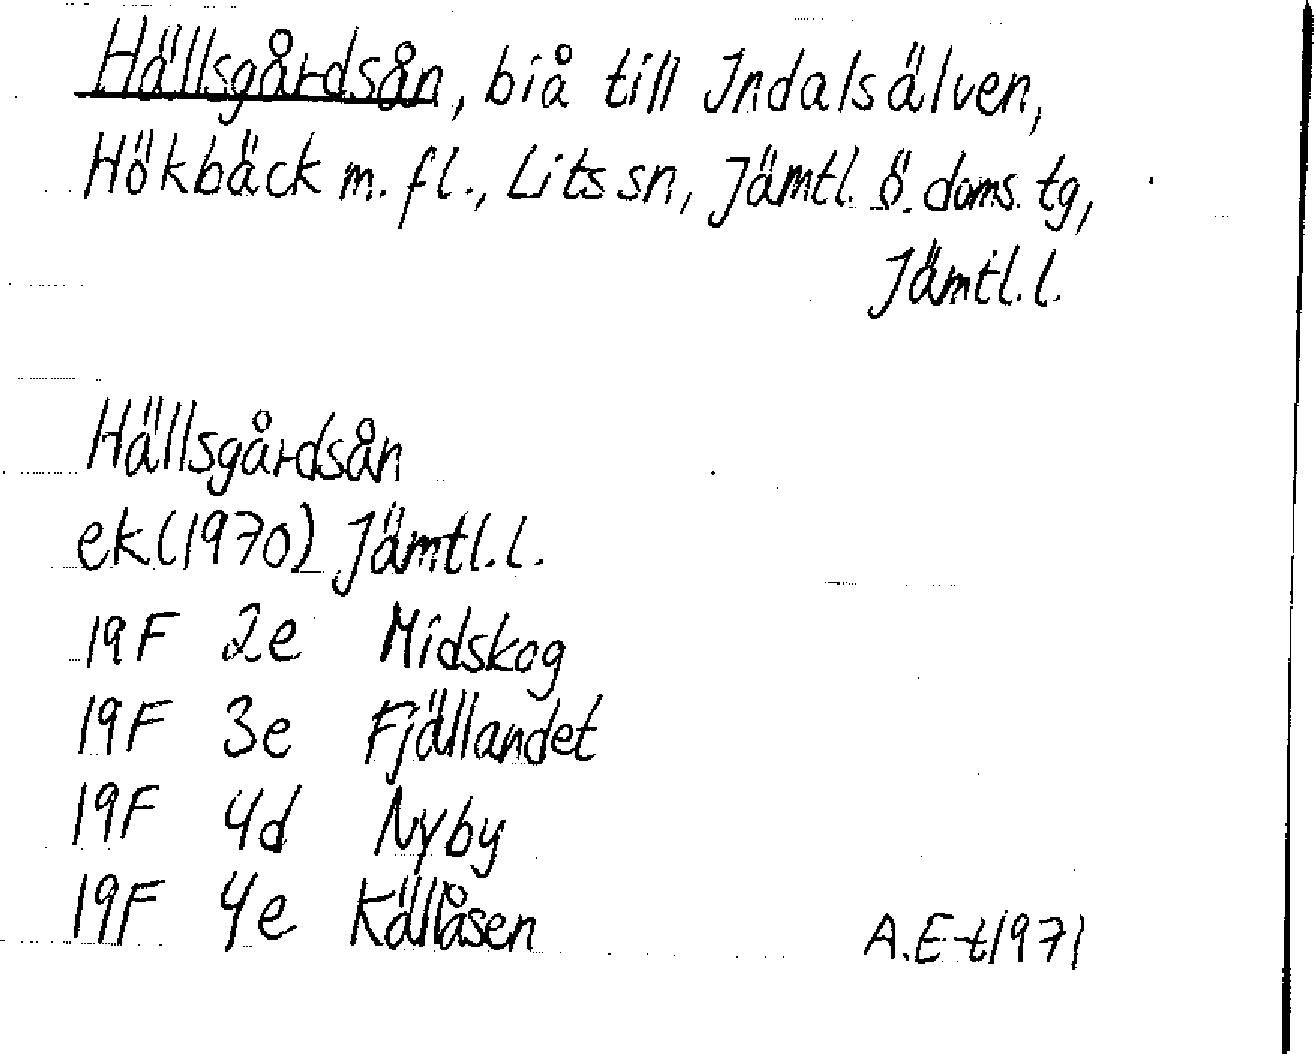 Hällsgårdsån, biå till Indalsälven,
Hökbäck m. fl., Lits sn, Jämtl. ö. doms. tg,
Jämtl. l.
Hällsgårdsån
ek (1970) Jämtl. l.
19F 2e Midskog
19F 3e Fjällandet
19F 4d Nyby
19F 4e Källåsen
A.E-t 1971